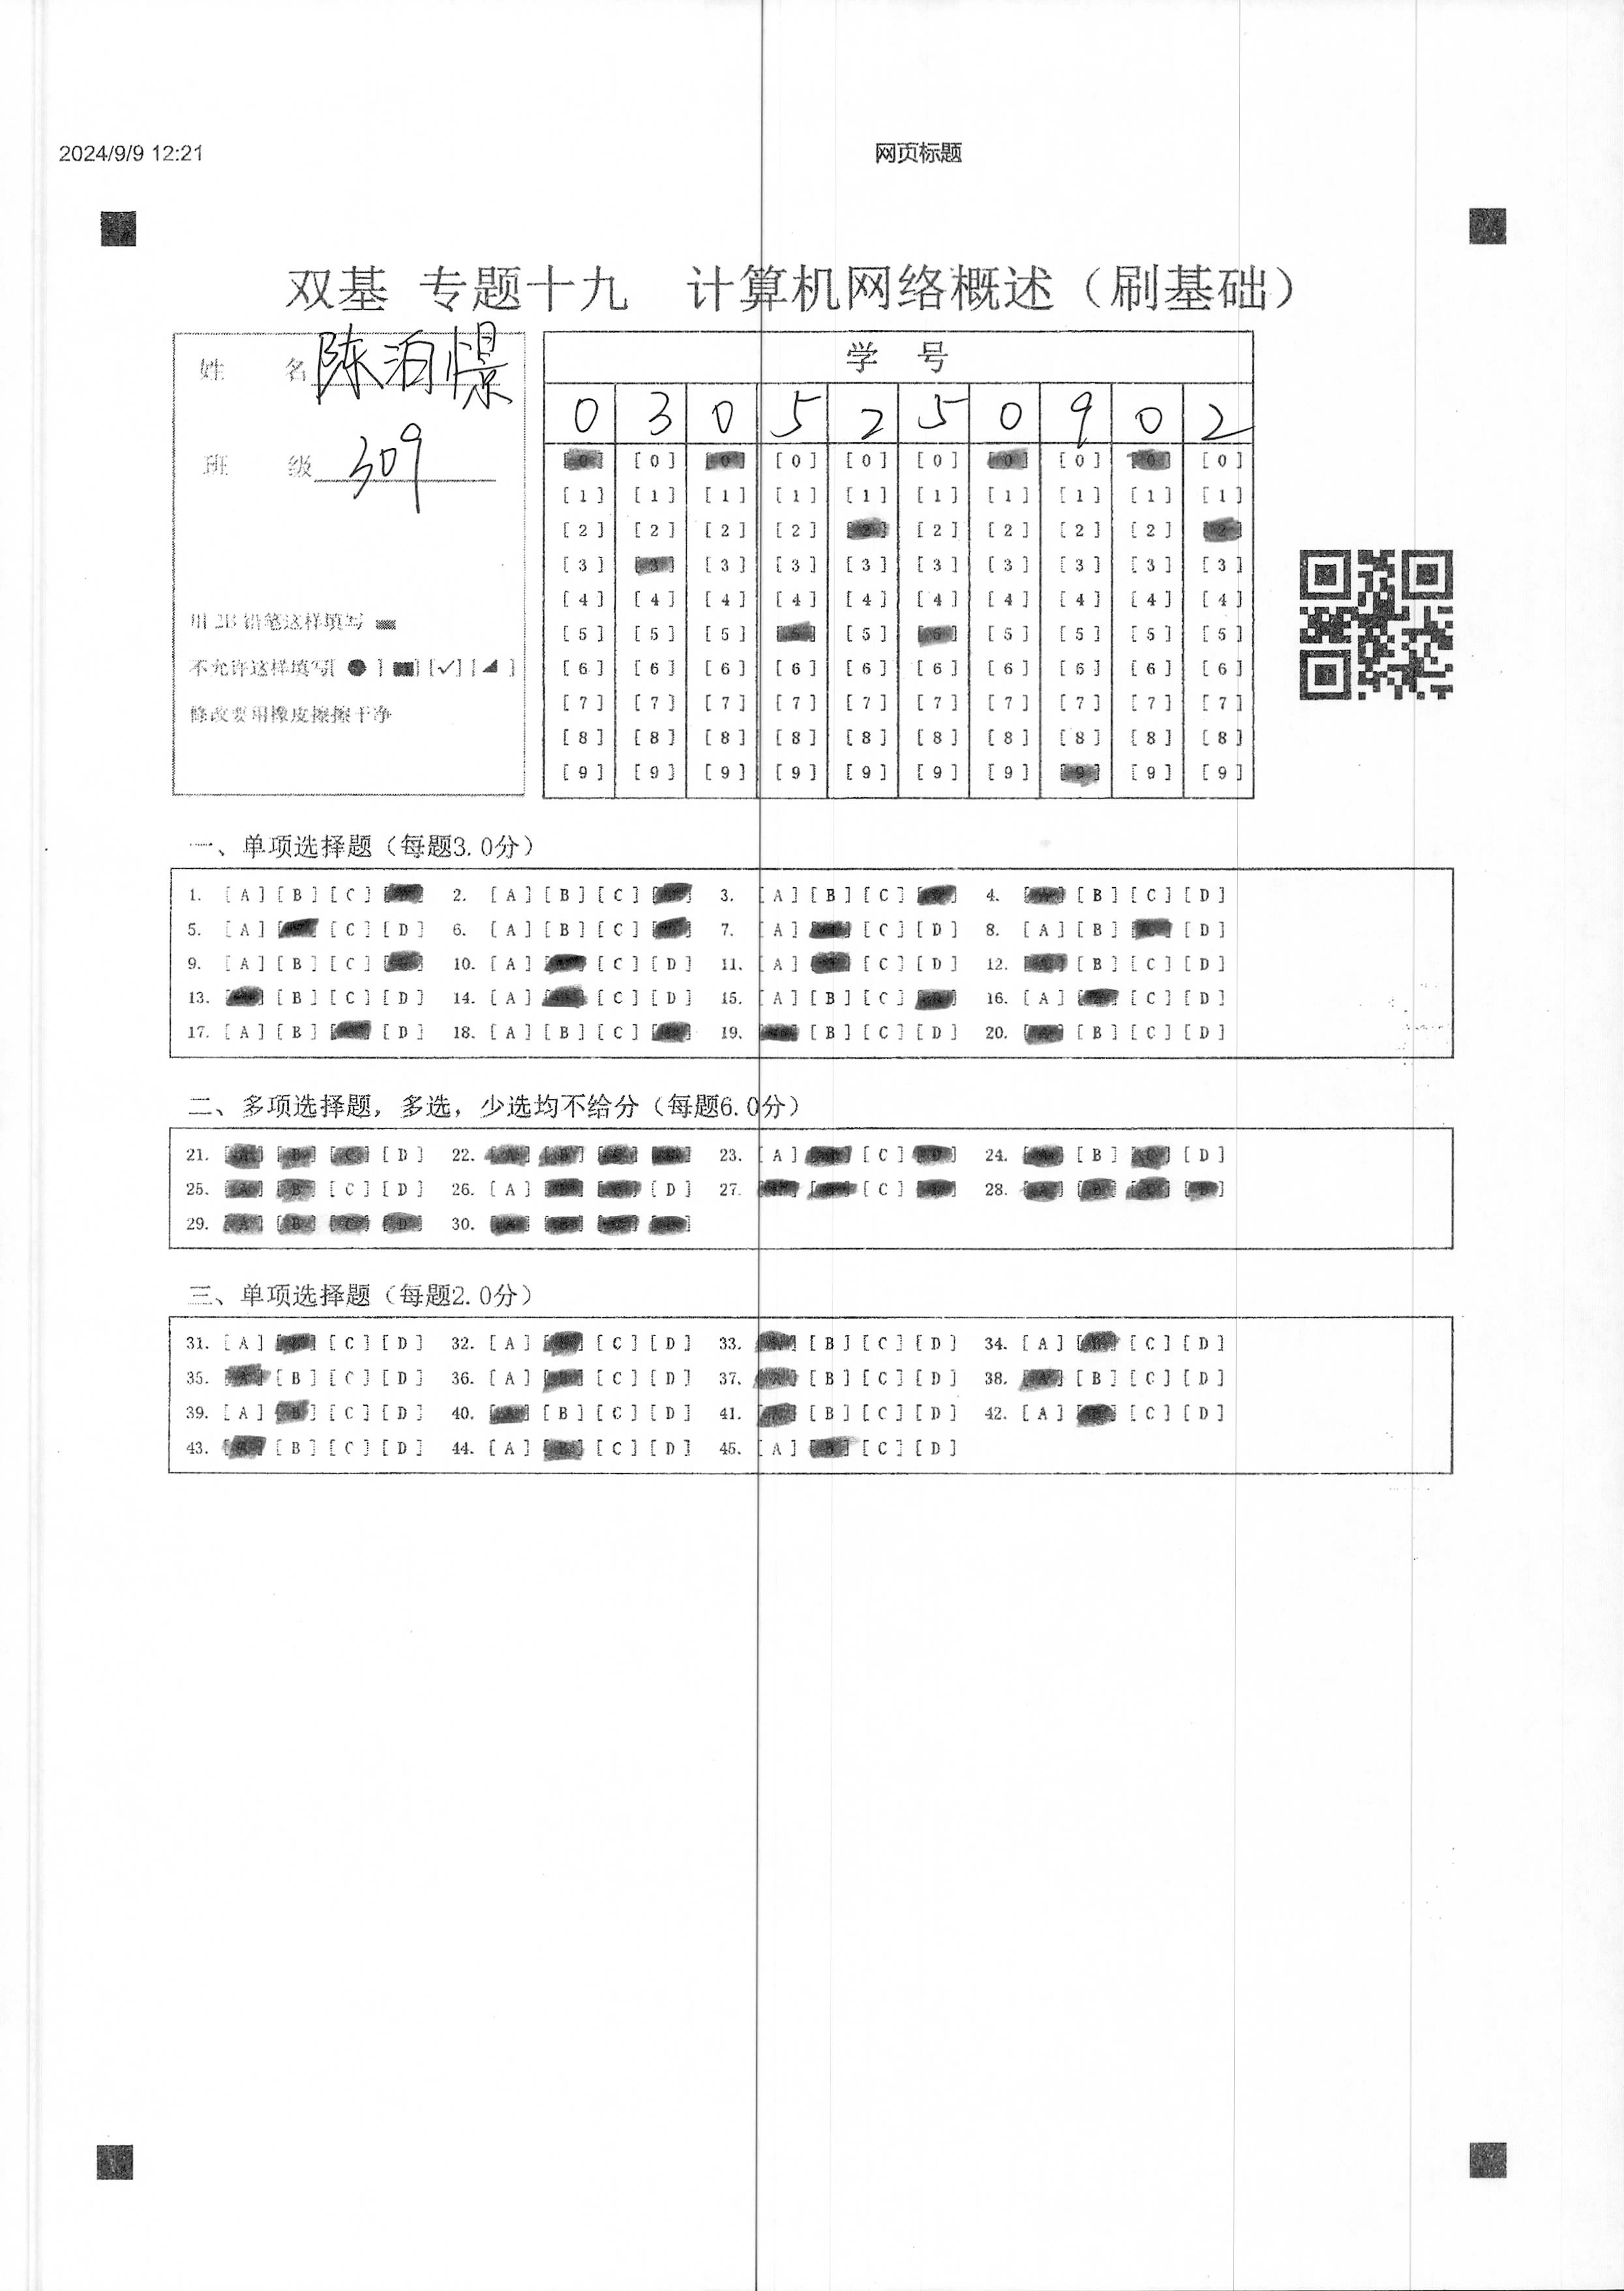 2024/9/9 12:21 网页标题
双基 专题十九 计算机网络概述（刷基础）
姓 名 陈泊憬
班 级 309
用 2B 铅笔这样填写
不允许这样填写[ ● ] [■] [✓] [◢ ]
修改要用橡皮擦擦干净
学 号
0 3 0 5 2 5 0 9 0 2
[0] [0] [0] [0] [0] [0] [0] [0] [0] [0]
[1] [1] [1] [1] [1] [1] [1] [1] [1] [1]
[2] [2] [2] [2] [2] [2] [2] [2] [2] [2]
[3] [3] [3] [3] [3] [3] [3] [3] [3] [3]
[4] [4] [4] [4] [4] [4] [4] [4] [4] [4]
[5] [5] [5] [5] [5] [5] [5] [5] [5] [5]
[6] [6] [6] [6] [6] [6] [6] [6] [6] [6]
[7] [7] [7] [7] [7] [7] [7] [7] [7] [7]
[8] [8] [8] [8] [8] [8] [8] [8] [8] [8]
[9] [9] [9] [9] [9] [9] [9] [9] [9] [9]
一、单项选择题（每题3.0分）
1. [A] [B] [C] 2. [A] [B] [C] 3. [A] [B] [C] 4. [B] [C] [D]
5. [A] [C] [D] 6. [A] [B] [C] 7. [A] [C] [D] 8. [A] [B] [D]
9. [A] [B] [C] 10. [A] [C] [D] 11. [A] [C] [D] 12. [B] [C] [D]
13. [B] [C] [D] 14. [A] [C] [D] 15. [A] [B] [C] 16. [A] [C] [D]
17. [A] [B] [D] 18. [A] [B] [C] 19. [B] [C] [D] 20. [B] [C] [D]
二、多项选择题，多选，少选均不给分（每题6.0分）
21. [A] [B] [C] [D] 22. [A] [B] 23. [A] [C] [D] 24. [B] [C] [D]
25. [A] [B] [C] [D] 26. [A] [D] 27. [C] 28. [A] [B] [C] [D]
29. [A] [B] [C] [D] 30.
三、单项选择题（每题2.0分）
31. [A] [C] [D] 32. [A] [C] [D] 33. [B] [C] [D] 34. [A] [C] [D]
35. [A] [B] [C] [D] 36. [A] [C] [D] 37. [B] [C] [D] 38. [A] [B] [C] [D]
39. [A] [B] [C] [D] 40. [B] [C] [D] 41. [B] [C] [D] 42. [A] [C] [D]
43. [B] [C] [D] 44. [A] [B] [C] [D] 45. [A] [B] [C] [D]